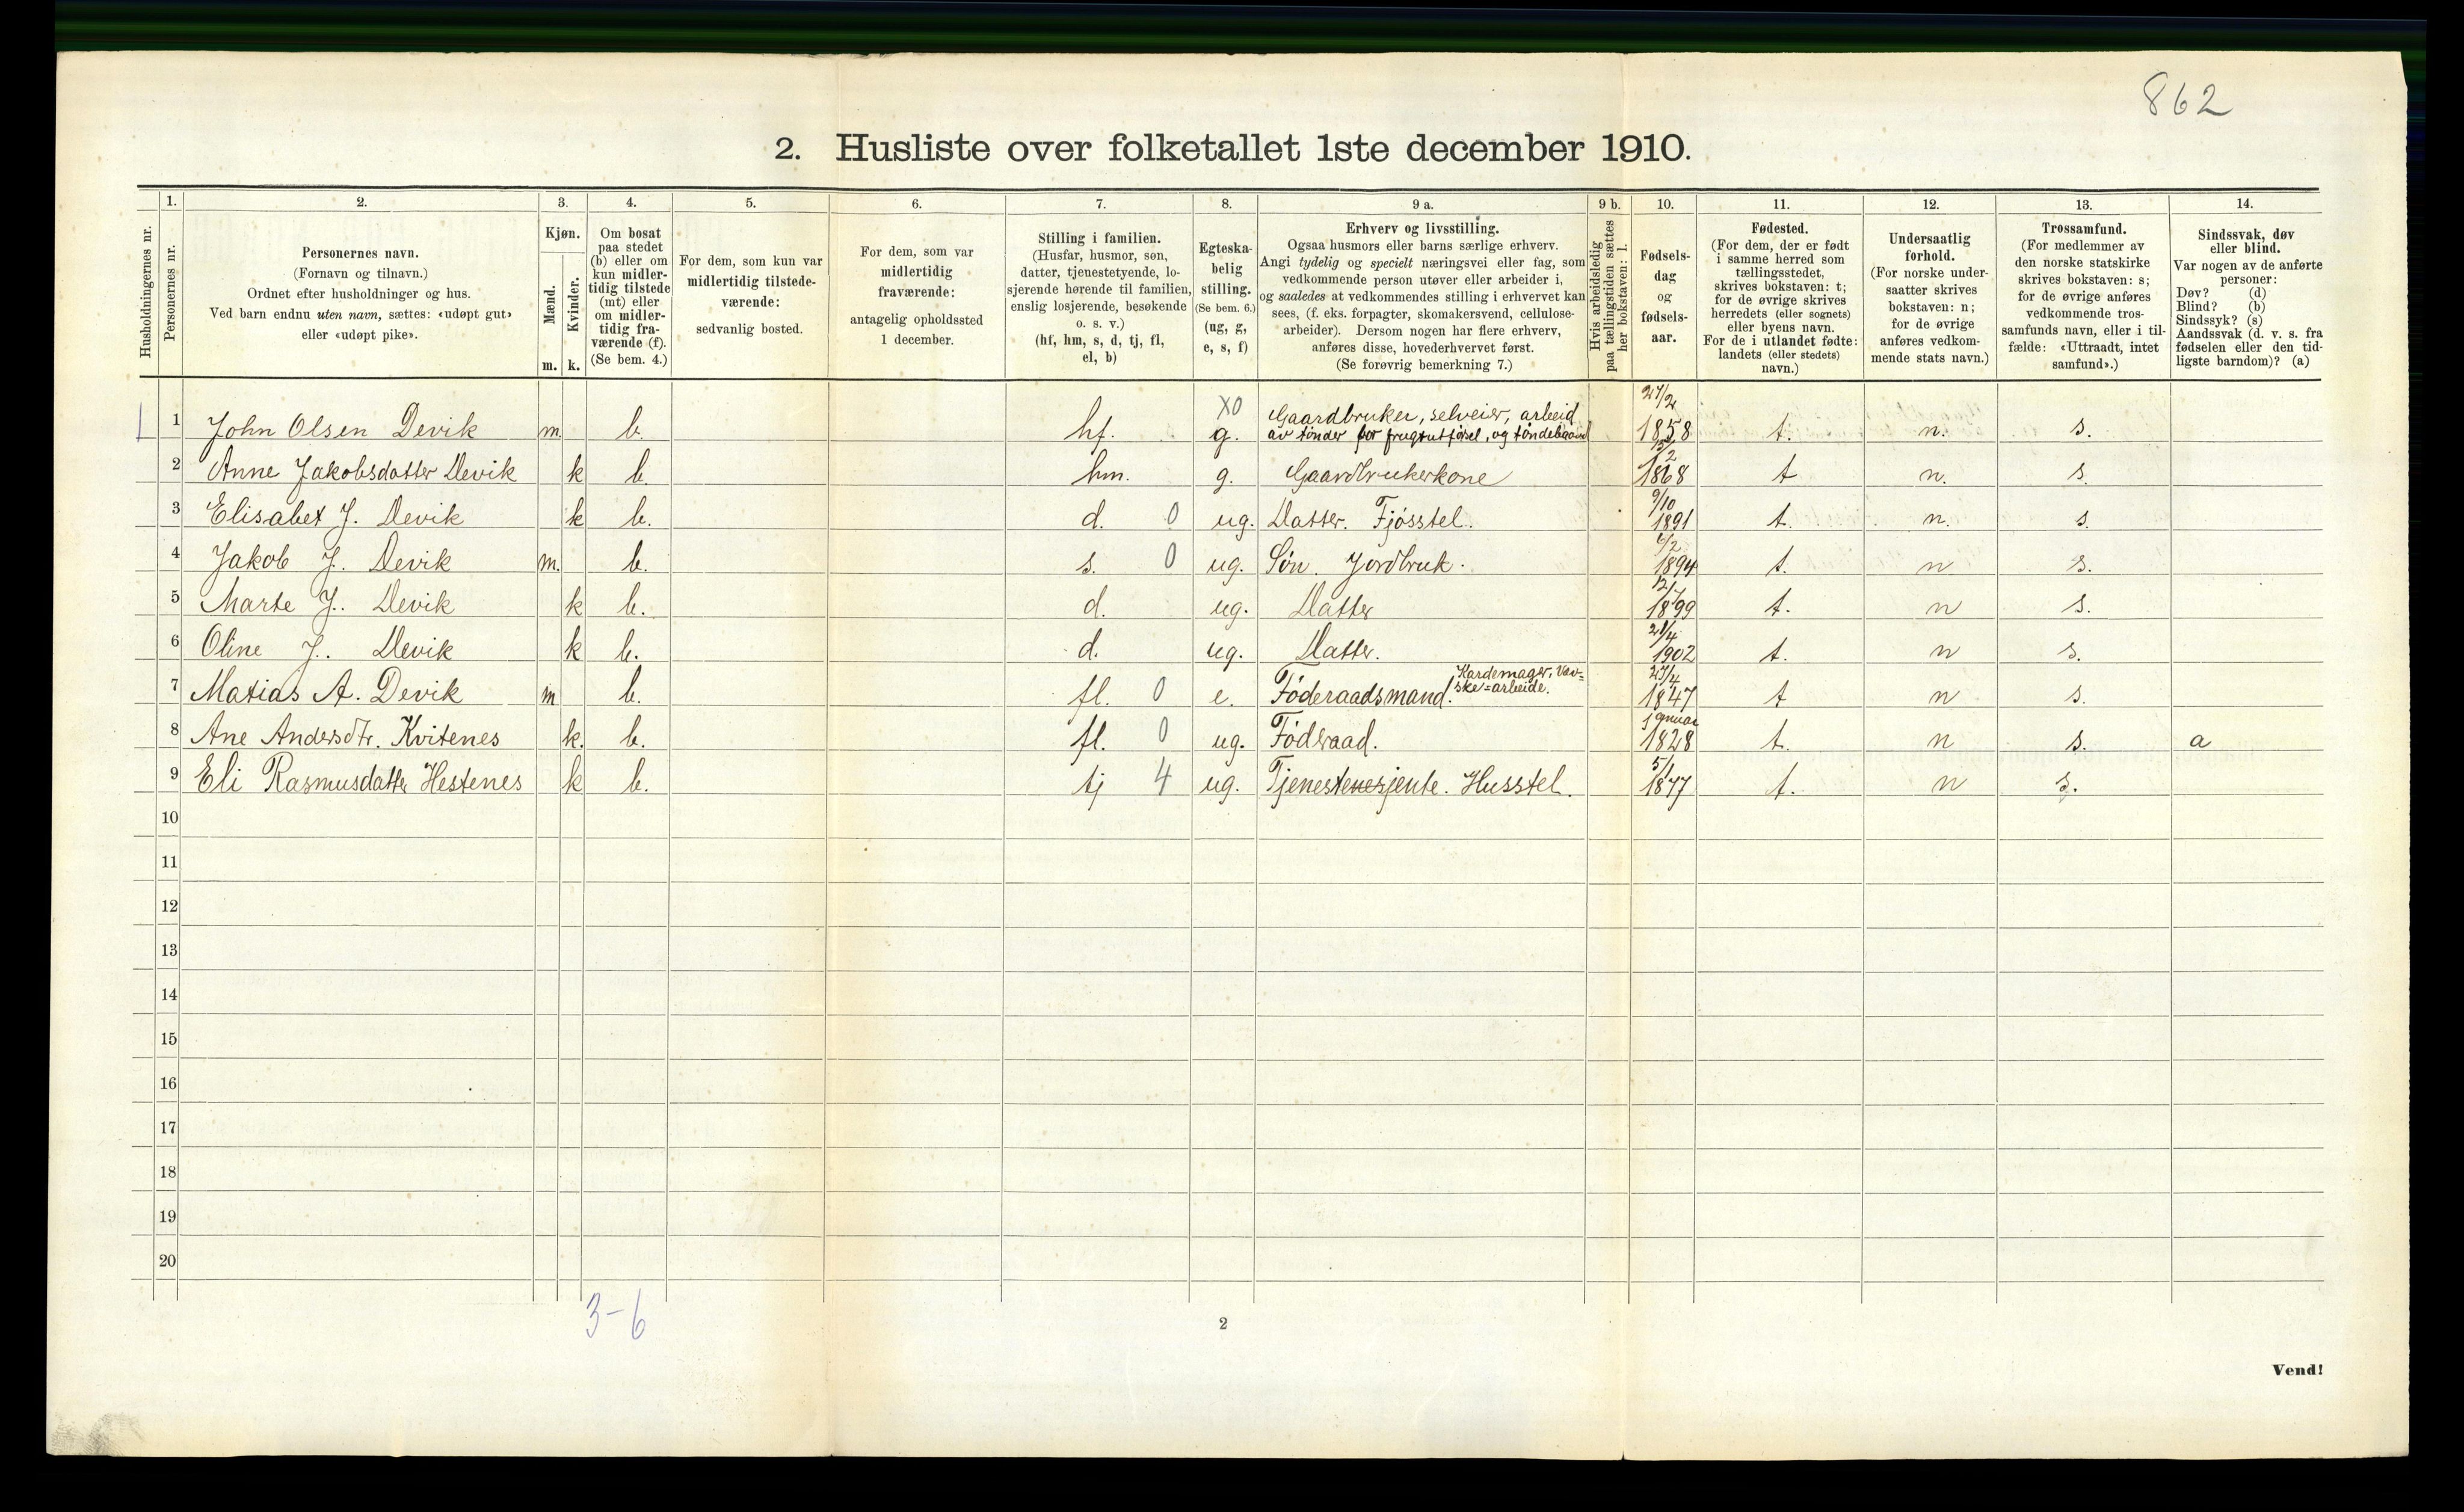 862
2. Husliste over folketallet 1ste december 1910.
Husholdningernes nr.
1. 2. 3. 4. 5. 6. 7. 8. 9 a. 9 b. 10. 11. 12. 13. 14.
Personernes nr.
Personernes navn.
(Fornavn og tilnavn.)
Ordnet efter husholdninger og hus.
Ved barn endnu uten navn, sættes: «udøpt gut»
eller «udøpt pike».
Kjøn.
Mænd.
Kvinder.
m. k.
Om bosat
paa stedet
(b) eller om
kun midler-
tidig tilstede
(mt) eller
om midler-
tidig fra-
værende (f).
(Se bem. 4.)
For dem, som kun var
midlertidig tilstede-
værende:
sedvanlig bosted.
For dem, som var
midlertidig
fraværende:
antagelig opholdssted
1 december.
Stilling i familien.
(Husfar, husmor, søn,
datter, tjenestetyende, lo-
sjerende hørende til familien,
enslig losjerende, besøkende
o. s. v.)
(hf, hm, s, d, tj, fl,
el, b)
Egteska-
belig
stilling.
(Se bem. 6.)
(ug, g,
e, s, f)
Erhverv og livsstilling.
Ogsaa husmors eller barns særlige erhverv.
Angi tydelig og specielt næringsvei eller fag, som
vedkommende person utøver eller arbeider i,
og saaledes at vedkommendes stilling i erhvervet kan
sees, (f. eks. forpagter, skomakersvend, cellulose-
arbeider). Dersom nogen har flere erhverv,
anføres disse, hovederhvervet først.
(Se forøvrig bemerkning 7.)
Hvis arbeidsledig
paa tællingstiden sættes
her bokstaven: l.
Fødsels-
dag
og
fødsels-
aar.
Fødested.
(For dem, der er født
i samme herred som
tællingsstedet,
skrives bokstaven: t;
for de øvrige skrives
herredets (eller sognets)
eller byens navn.
For de i utlandet fødte:
landets (eller stedets)
navn.)
Undersaatlig
forhold.
(For norske under-
saatter skrives
bokstaven: n;
for de øvrige
anføres vedkom-
mende stats navn.)
Trossamfund.
(For medlemmer av
den norske statskirke
skrives bokstaven: s;
for de øvrige anføres
vedkommende tros-
samfunds navn, eller i til-
fælde: «Uttraadt, intet
samfund».)
Sindssvak, døv
eller blind.
Var nogen av de anførte
personer:
Døv? (d)
Blind? (b)
Sindssyk? (s)
Aandssvak (d. v. s. fra
fødselen eller den tid-
ligste barndom)? (a)
X0 Gaardbruker, selveier, arbeid 27/2
1 1 John Olsen Devik m. b. hf. g. av tønder for frugtutførsel, og tøndebaand 1858 t. n. s.
2 Anne Jakobsdatter Devik k b. hm. g. Gaardbrukerkone 15/2 1868 t n. s.
3 Elisabet J. Devik k b. d. 0 ug. Datter. Fjósstel. 9/10 1891 t. n. s.
4 Jakob J. Devik m. b. s. 0 ug. Søn. Jordbruk. 6/2 1894 t. n s.
5 Marte J. Devik k b. d. ug. Datter 12/7 1899 t. n s.
6 Oline J. Devik k b. d. ug. Datter. 21/4 1902 t. n s.
7 Matias A. Devik m b. fl. 0 e. Føderaadsmand. Kardemager, Væv=
ske=arbeide. 27/4 1847 t n s.
8 Ane Andersdtr. Kvitenes k. b. fl. 0 ug. Føderaad. januar 1828 t. n s. a
9 Eli Rasmusdatter Hestenes k b. tj 4 ug. Tjenestenesjente. Husstel. 5/1 1877 t. n s.
10
11
12
13
14
15
16
17
18
19
20
3-6
2
Vend!